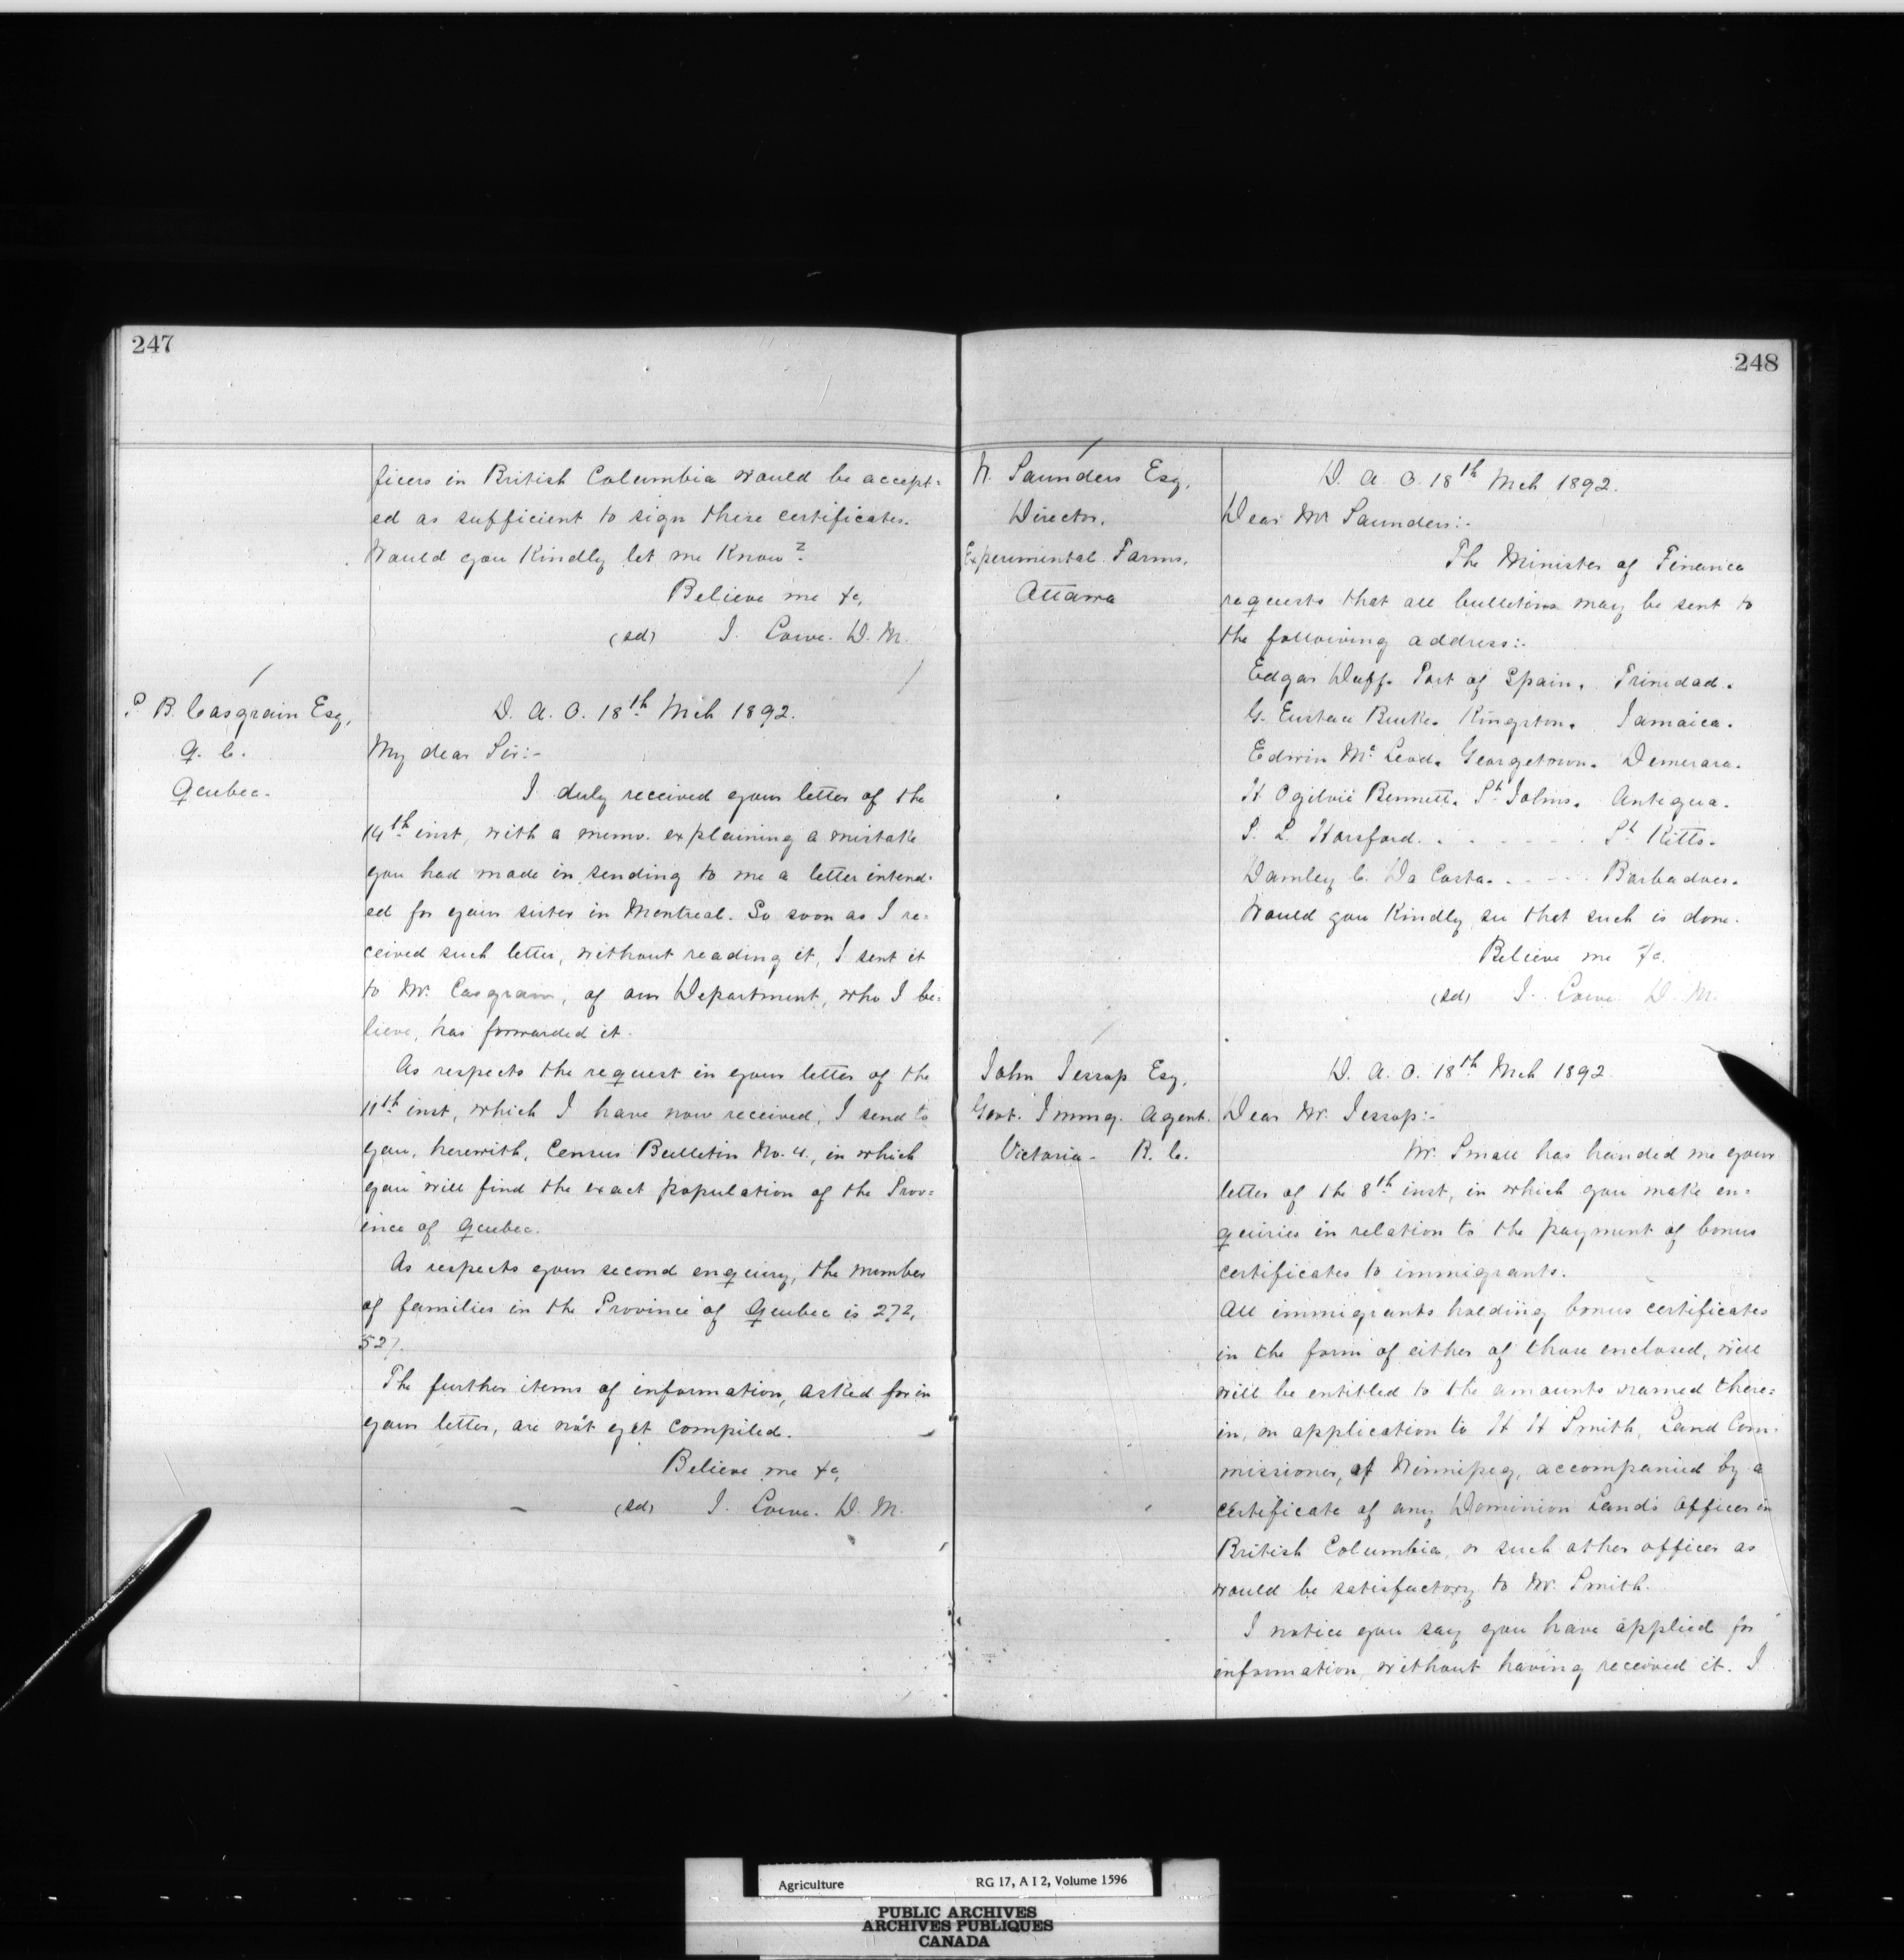 247
ficers in British Columbia would be accept=
ed as sufficient to sign these certificates.
Would you Kindly let me Know?
Believe me &c,
(sd) J. Lowe. D. M.
P. B. Casgrain Esq,
Q. C.
Quebec.
D. A. O. 18th Mch 1892.
My dear Sir:-
I duly received your letter of the
14th inst, with a memo. explaining a mistake
you had made in sending to me a letter intend-
ed for your sister in Montreal. So soon as I re=
ceived such letter, without reading it, I sent it
to Mr. Casgrain, of our Department, who I be=
lieve, has forwarded it.
As respects the request in your letter of the
11th inst, which I have now received, I send to
you, herewith, Census Bulletin No. 4., in which
you will find the exact population of the Prov=
ince of Quebec.
As respects your second enquiry, the number
of families in the Province of Quebec is 272,
527.
The further items of information, asked for in
your letter, are not yet compiled.
Believe me &c,
(sd) J. Lowe. D. M.
248
W. Saunders Esq,
Director,
Experimental Farms,
Ottawa
D. A. O. 18th Mch 1892.
Dear Mr Saunders:-
The Minister of Finance
requests that all bulletins may be sent to
the following address:-
Edgar Duff. Port of Spain. Trinidad.
G. Eustace Burke. Kingston. Jamaica.
Edwin Mc Leod. Georgetown. Demerara.
H Ogilvie Bennett. St Johns. Antigua.
S. L. Horsford. . . . . . . St Kitts.
Darnley C. Da Costa. . . . . Barbadoes.
Would you Kindly see that such is done.
Believe me &c.
(sd) J. Lowe D. M.
John Jessop Esq,
Govt. Immg. Agent.
Victoria - B. C.
D. A. O. 18th Mch 1892.
Dear Mr. Jessop:-
Mr. Small has handed me your
letter of the 8th inst, in which you make en-
quiries in relation to the payment of bonus
certificates to immigrants.
All immigrants holding bonus certificates
in the form of either of those enclosed, will
will be entitled to the amounts named there=
in, on application to H H Smith, Land Com-
missioner, of Winnipeg, accompanied by a
certificate of any Dominion Lands Officer in
British Columbia, or such other officer as
would be satisfactory to Mr. Smith.
I notice you say you have applied for
information, without having received it. I
Agriculture RG 17, A I 2, Volume 1596
PUBLIC ARCHIVES
ARCHIVES PUBLIQUES
CANADA